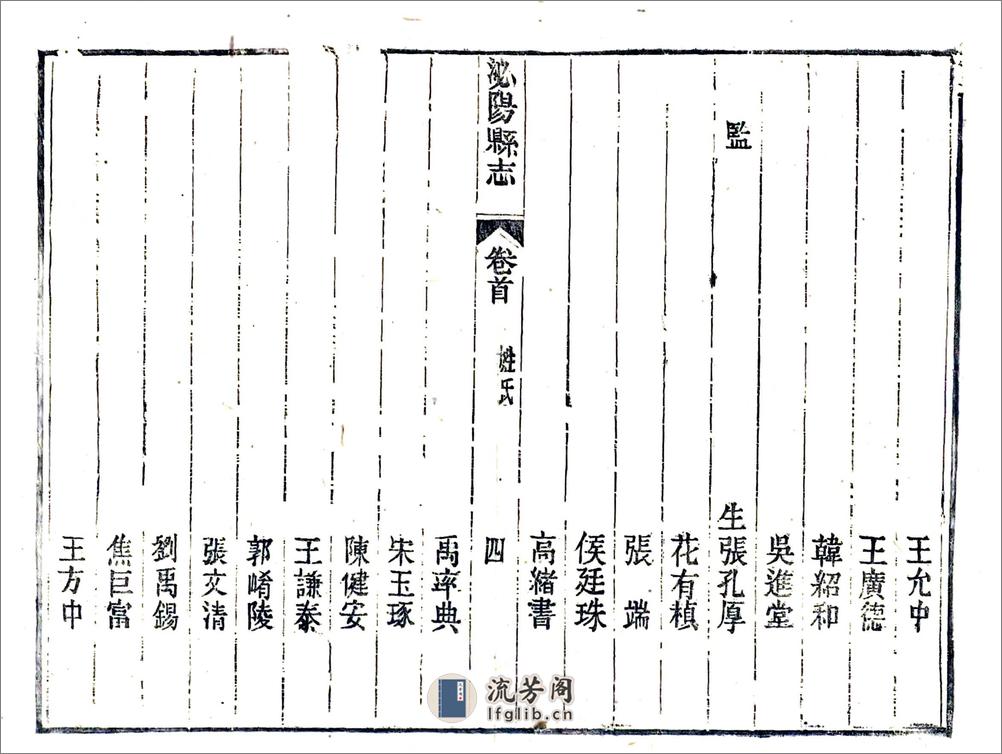 王允中
王廣德
韓紹和
吳進堂
監　生張孔厚
花有楨
張　端
侯廷珠
高緒書
泌陽縣志　卷首　姓氏　四
禹率典
宋玉琢
陳健安
王謙泰
郭崤陵
張文清
劉禹錫
焦巨富
王方中
流芳阁
lfglib.cn